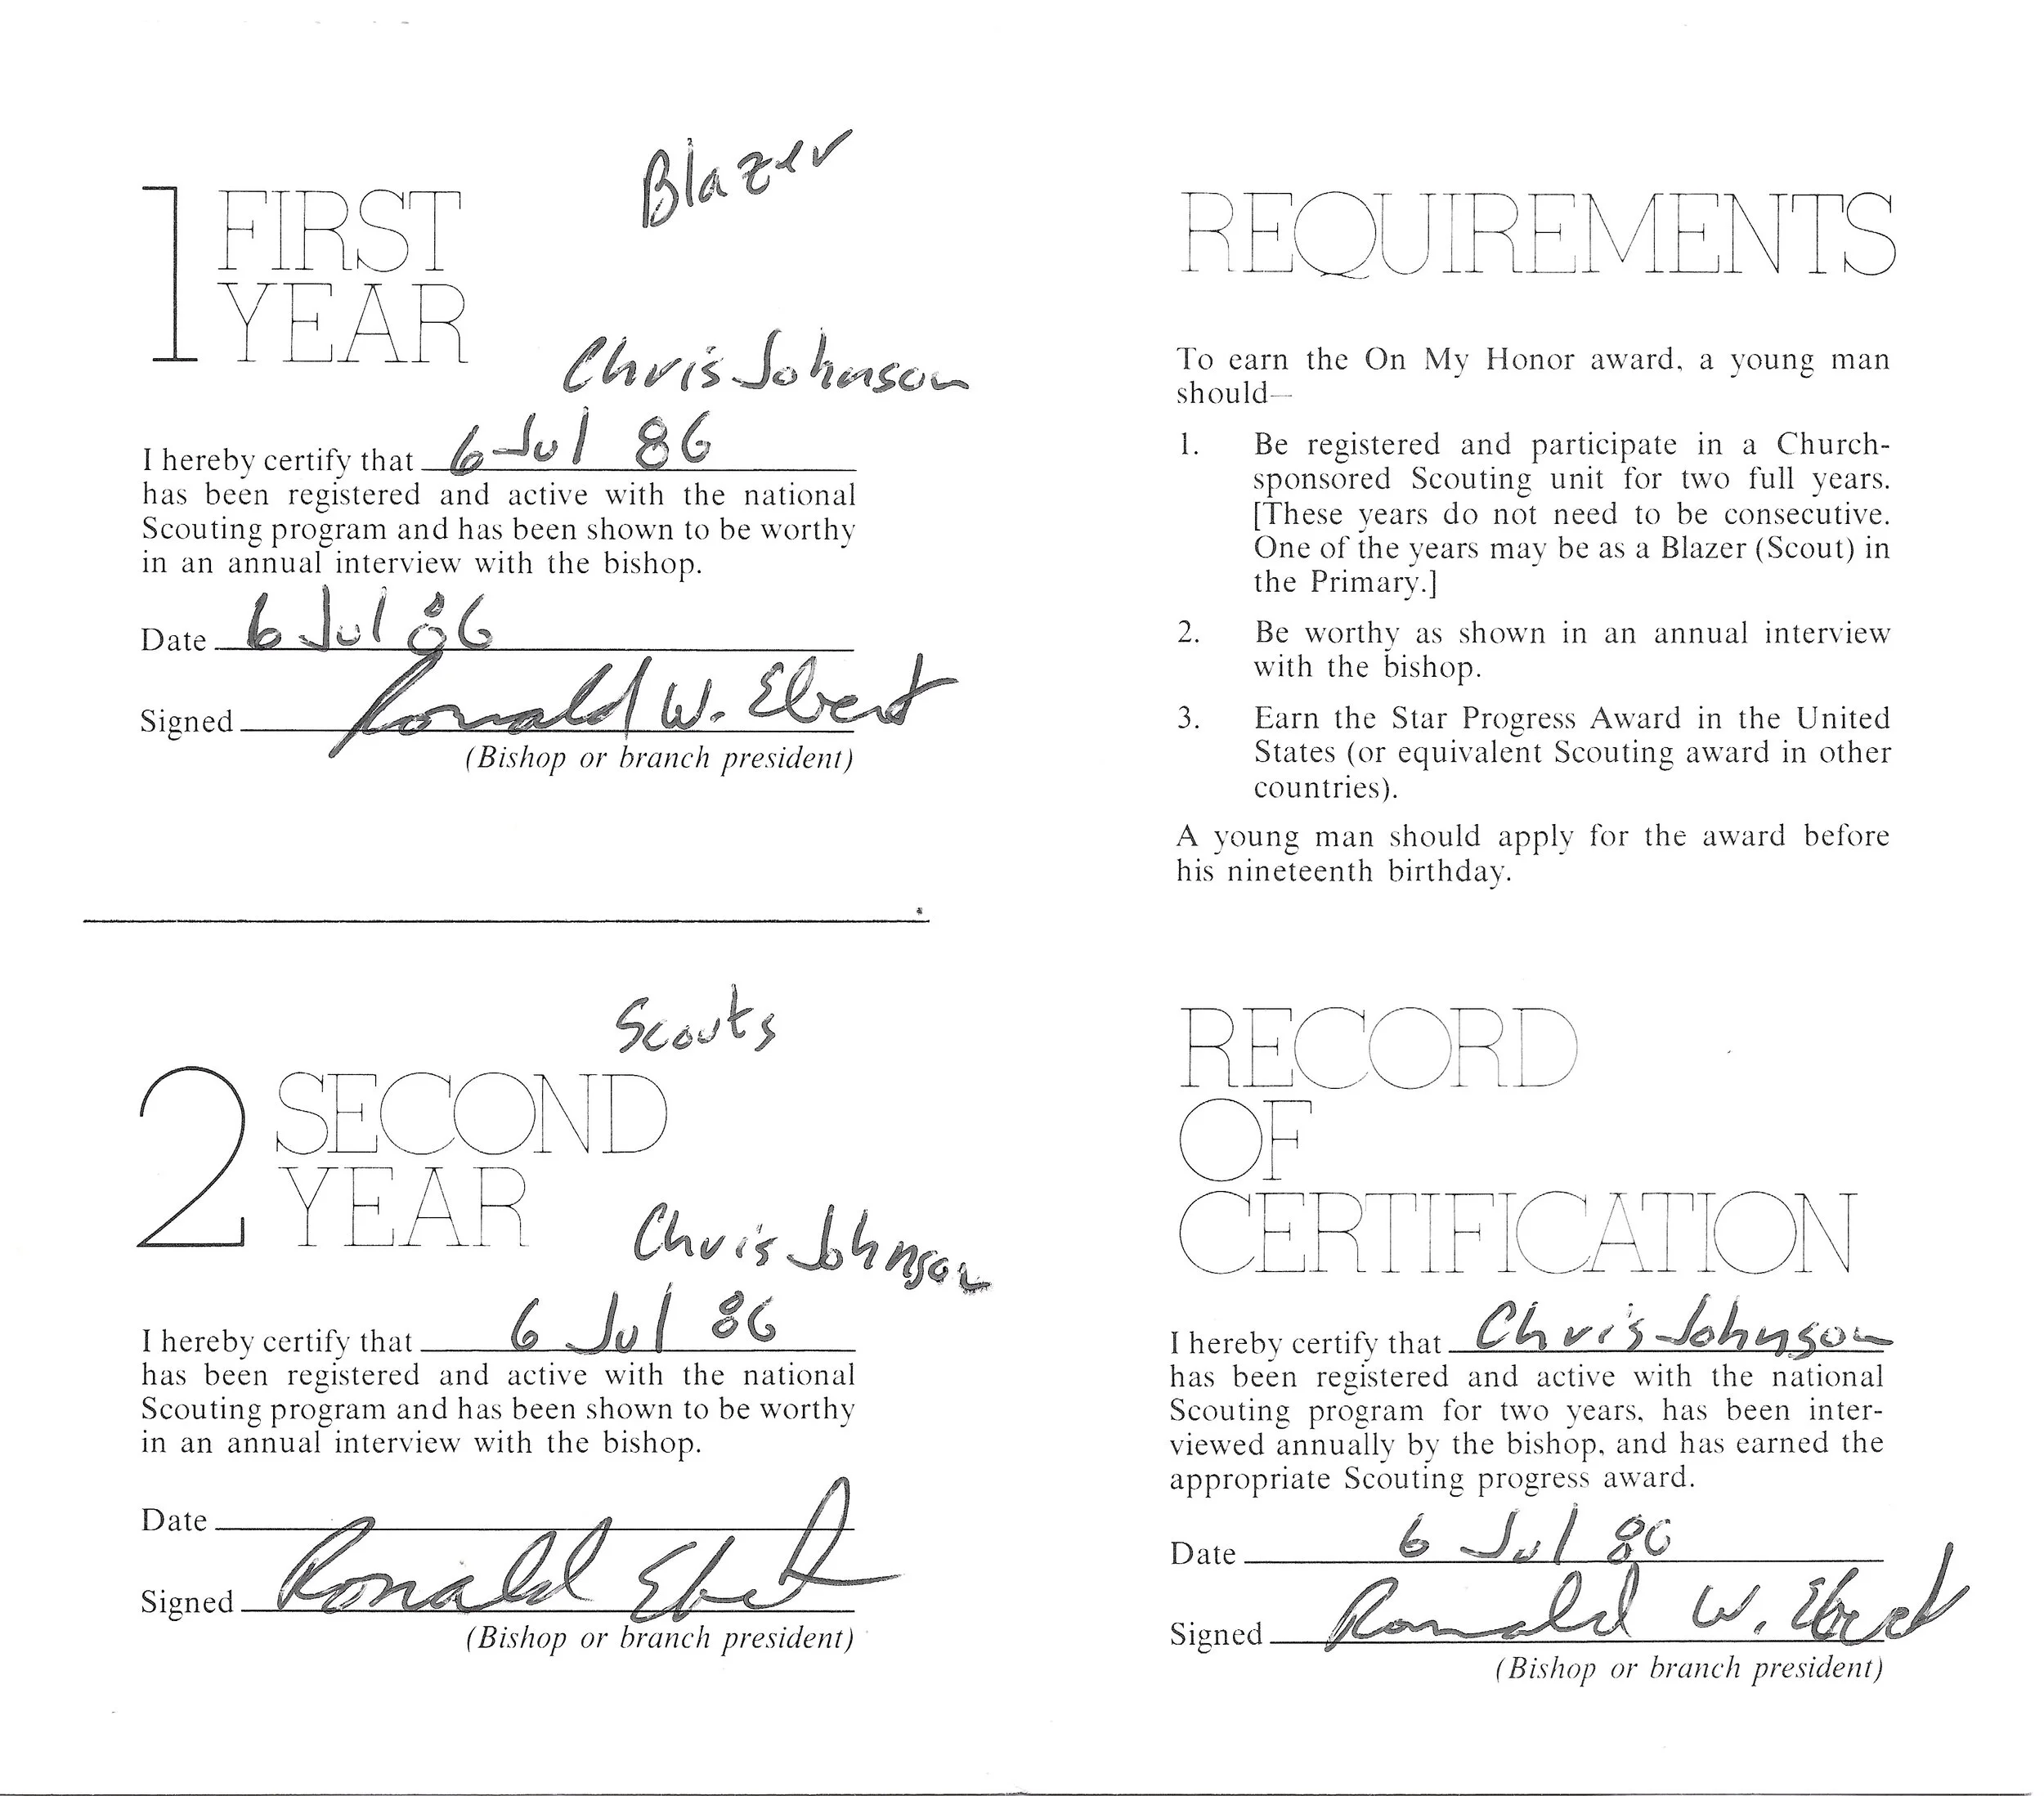 Blazer
1 FIRST
YEAR
Chris Johnson
I hereby certify that 6 Jul 86
has been registered and active with the national
Scouting program and has been shown to be worthy
in an annual interview with the bishop.
Date 6 Jul 86
Signed Ronald W. Ebert
(Bishop or branch president)
Scouts
2 SECOND
YEAR
Chris Johnson
I hereby certify that 6 Jul 86
has been registered and active with the national
Scouting program and has been shown to be worthy
in an annual interview with the bishop.
Date
Signed Ronald Ebert
(Bishop or branch president)
REQUIREMENTS
To earn the On My Honor award, a young man
should—
1. Be registered and participate in a Church-
sponsored Scouting unit for two full years.
[These years do not need to be consecutive.
One of the years may be as a Blazer (Scout) in
the Primary.]
2. Be worthy as shown in an annual interview
with the bishop.
3. Earn the Star Progress Award in the United
States (or equivalent Scouting award in other
countries).
A young man should apply for the award before
his nineteenth birthday.
RECORD
OF
CERTIFICATION
I hereby certify that Chris Johnson
has been registered and active with the national
Scouting program for two years, has been inter-
viewed annually by the bishop, and has earned the
appropriate Scouting progress award.
Date 6 Jul 86
Signed Ronald W. Ebert
(Bishop or branch president)